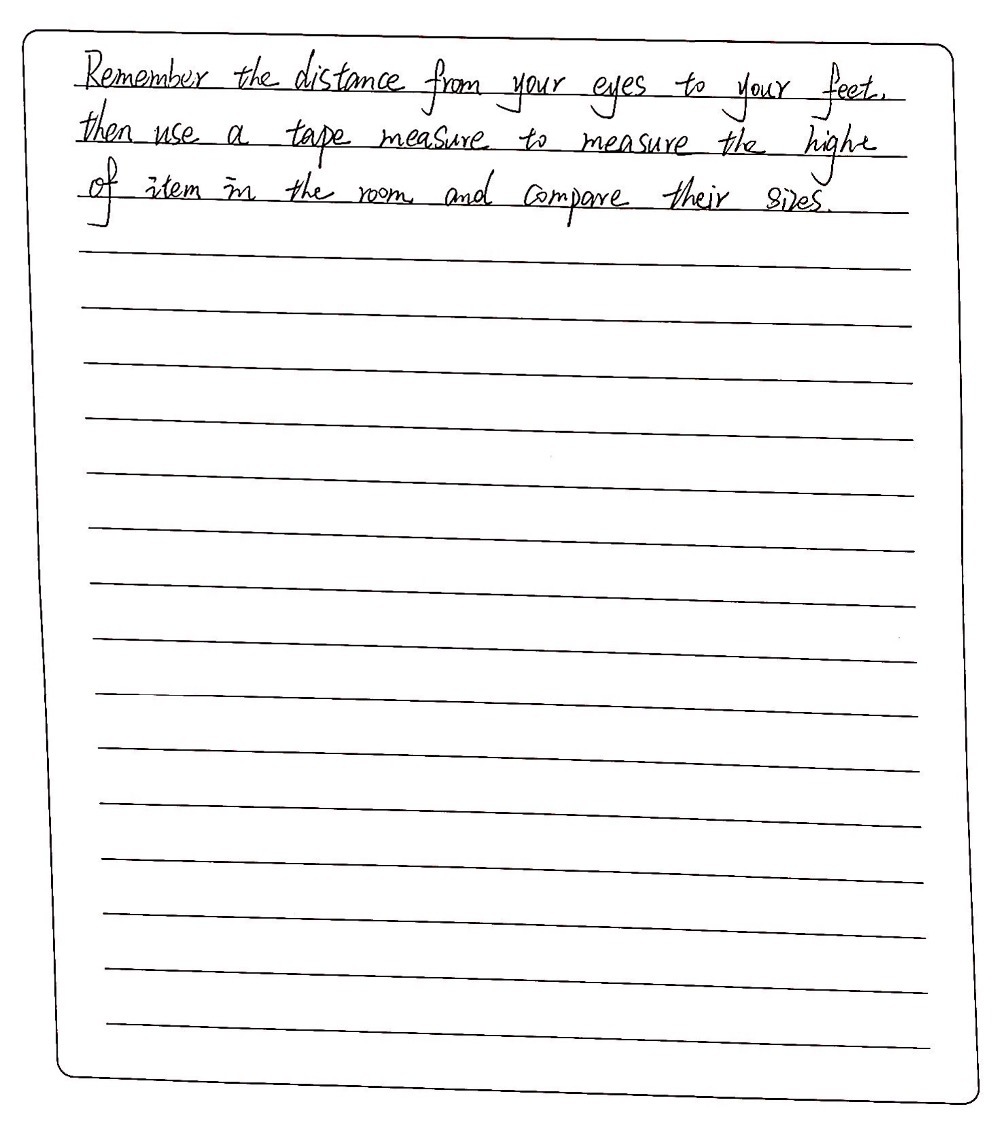 Remember the distance from your eyes to your feet,
then use a tape measure to measure the highe
of item in the room and compare their sizes.